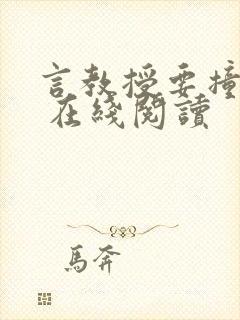 言教授要撞
在綫閱讀
馬奔